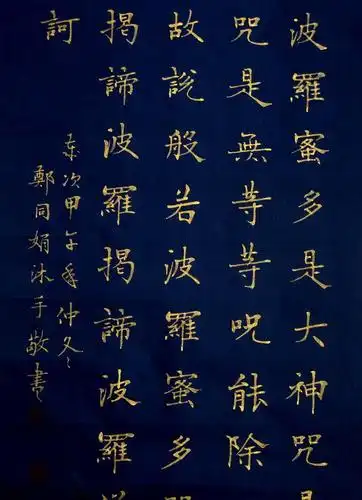 波羅蜜多是大神咒是
咒是無等等咒能除
故說般若波羅蜜多
揭諦波羅揭諦波羅
訶
歲次甲午年仲冬
鄭同娟沐手敬書